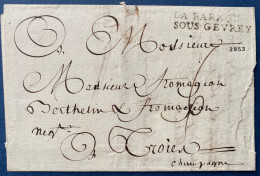 LA BARA
SOUS-GEVREY
A Monsieur
2853
Monsieur fromageon
Berthelin & fromageon
neg.ts
A Troies
Champagne